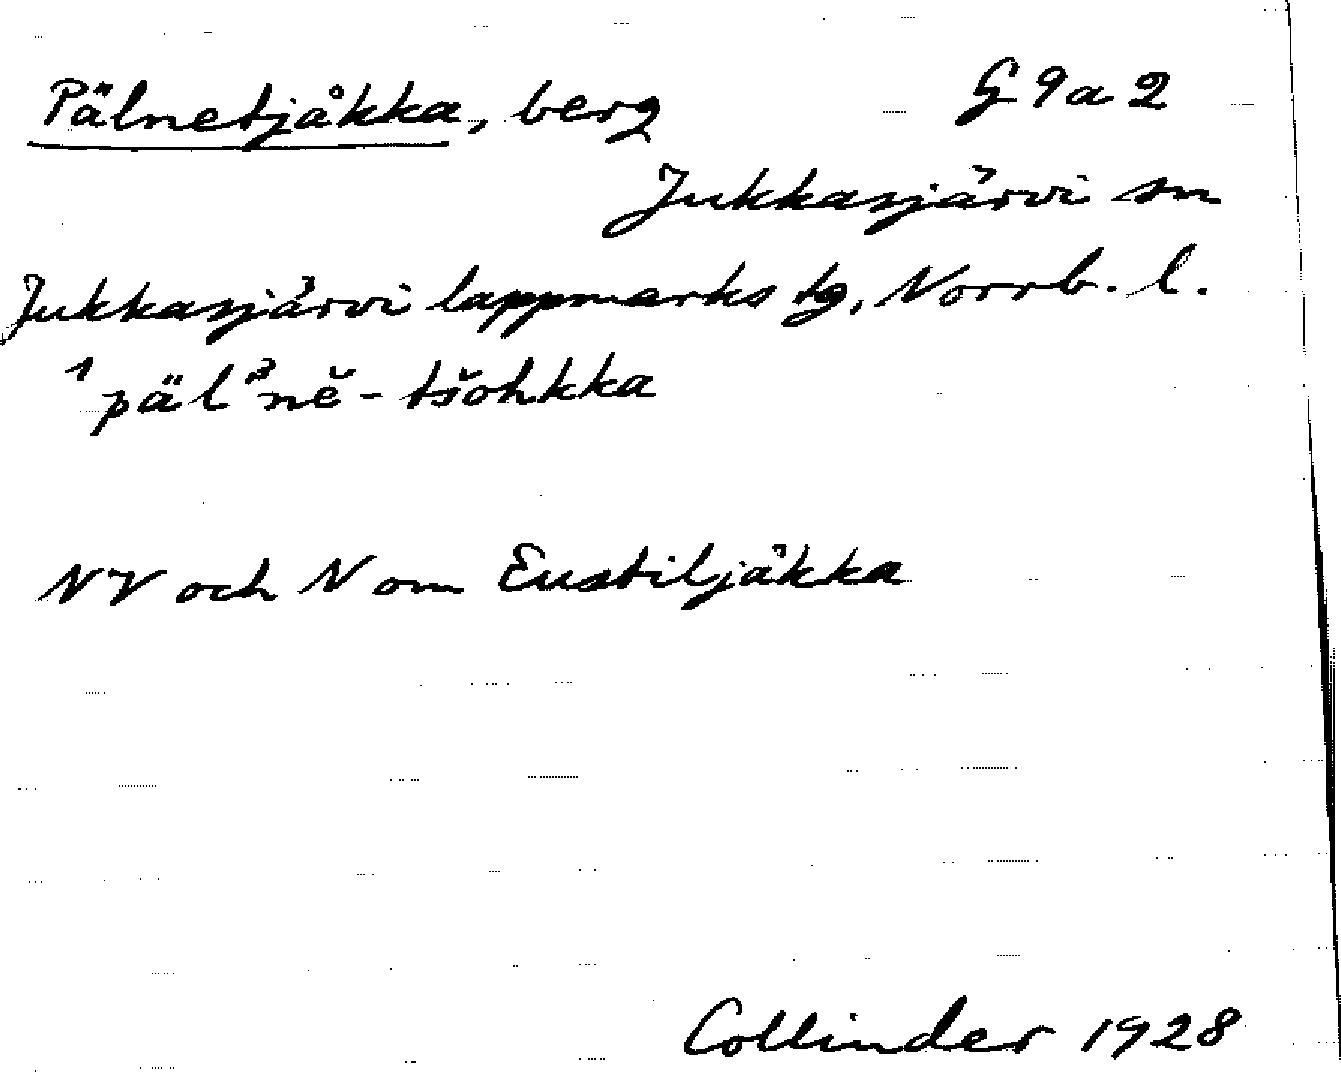 Pälnetjåkka, berg G 9 a 2
Jukkasjärvi sn
Jukkasjärvi lappmarks tg, Norrb. l.
¹päl³nĕ-tšohkka
NV och N om Eustiljåkka
Collinder 1928